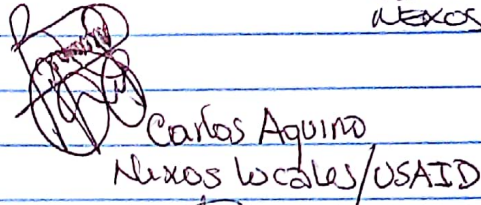 NEXOS
Carlos Aquino
Nexos locales/USAID